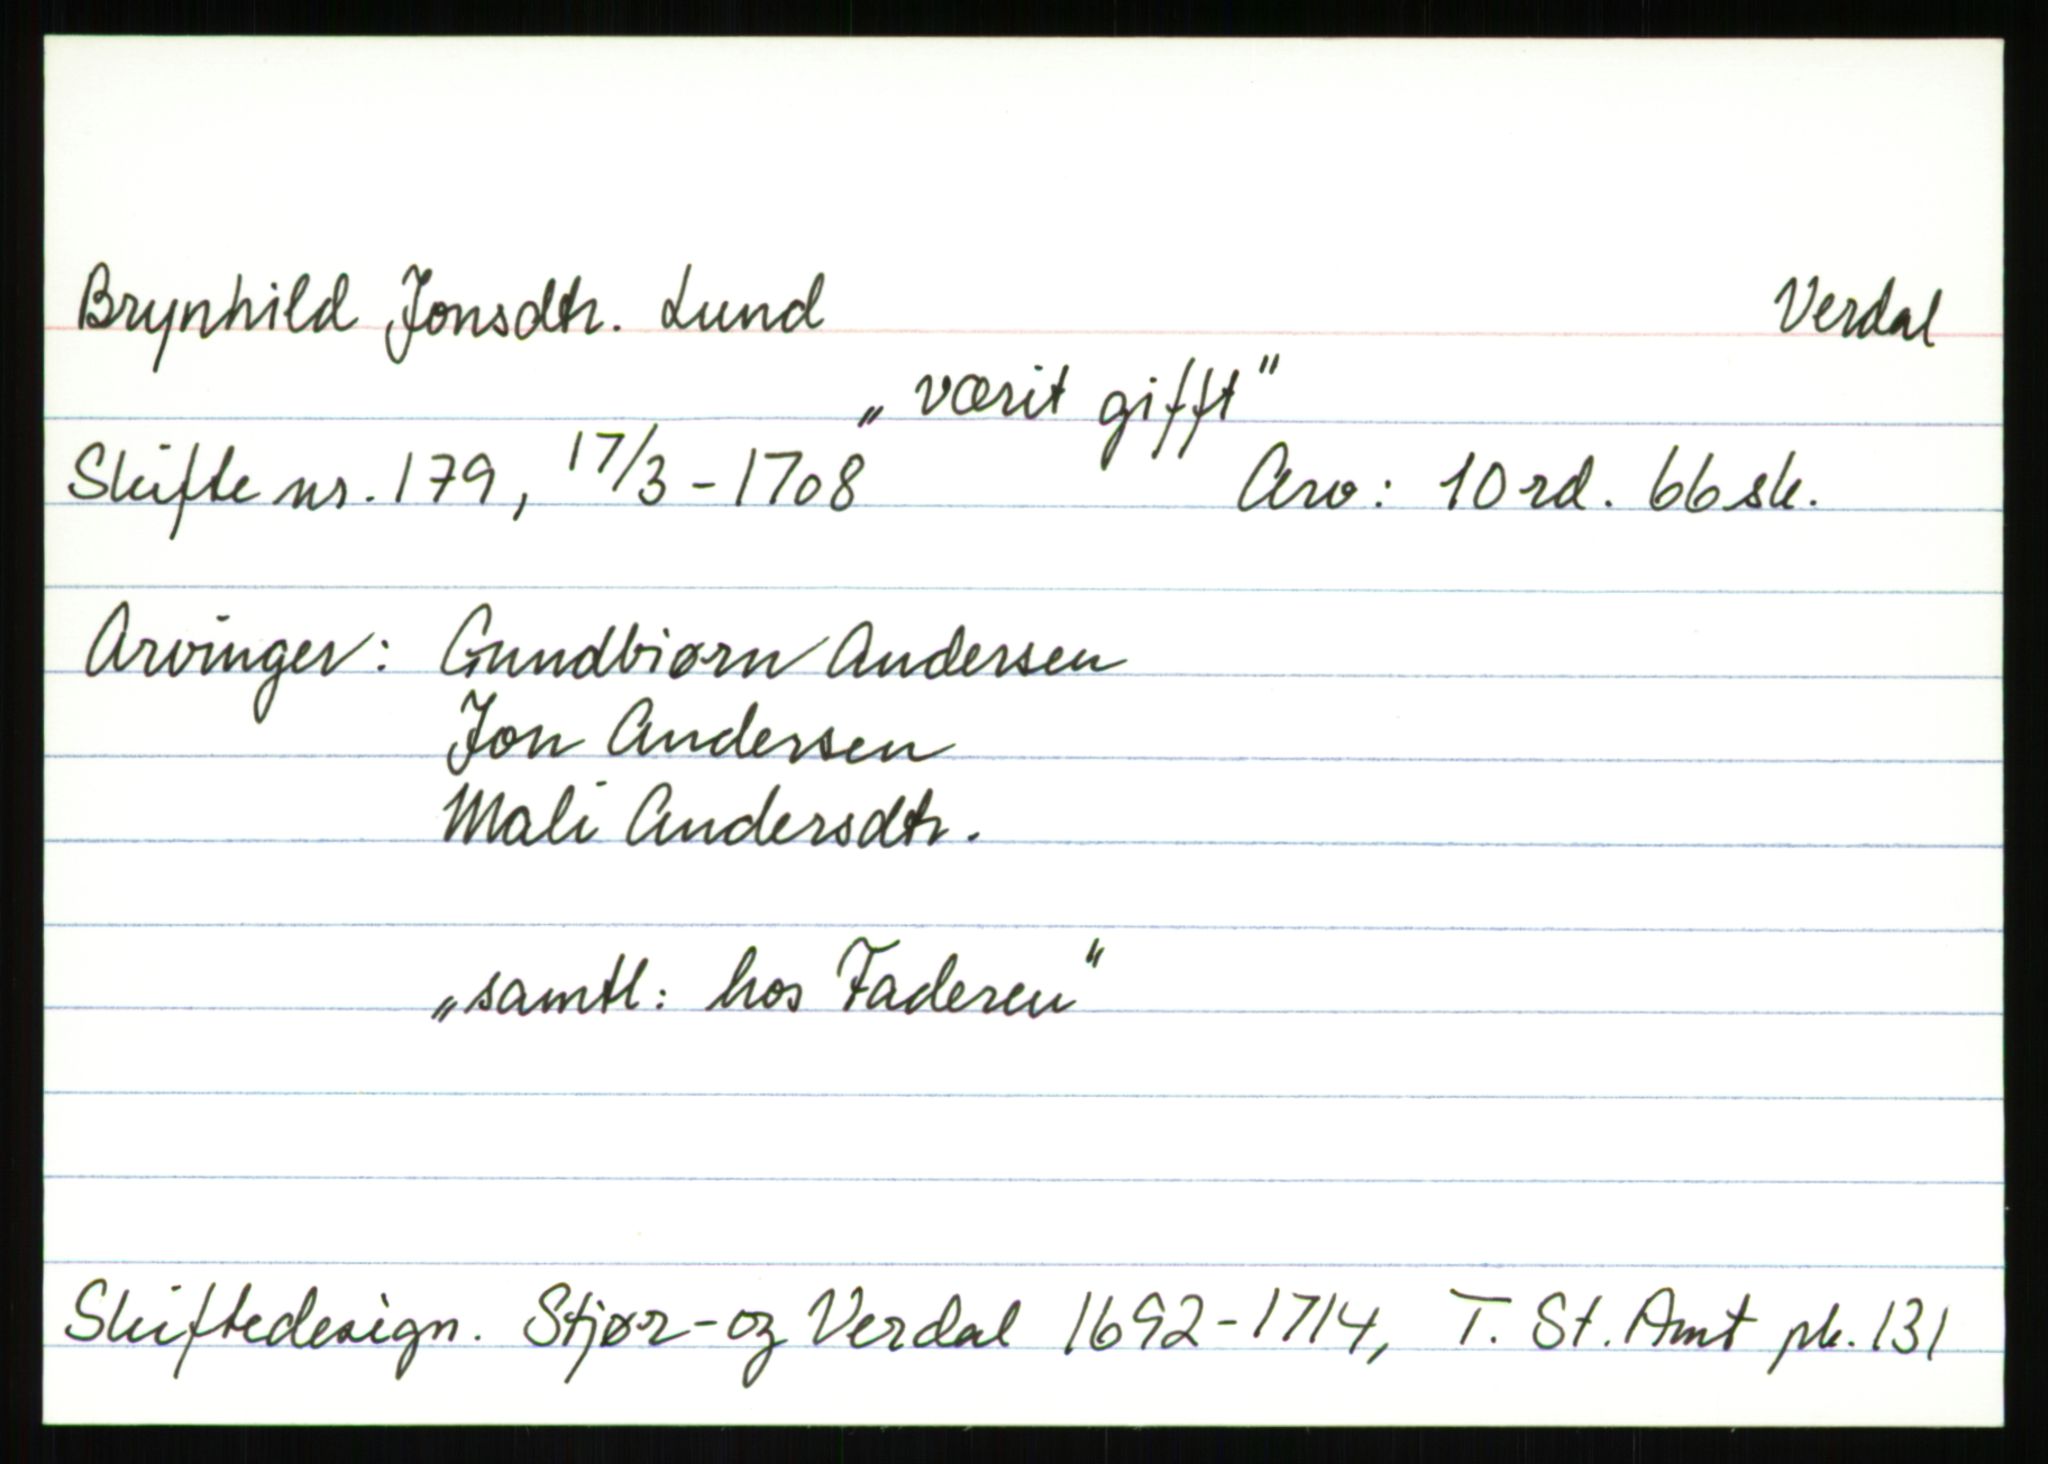 Brynhild Jonsdtr. Lund Verdal
„værit gifft"
Skifte nr. 179, 17/3 - 1708 Arv: 10 rd. 66 sk.
Arvinger: Gundbiørn Andersen
Jon Andersen
Mali Andersdtr.
„samtl: hos Faderen"
Skiftedesign. Stjør- og Verdal 1692-1714, T. St. Amt pk. 131